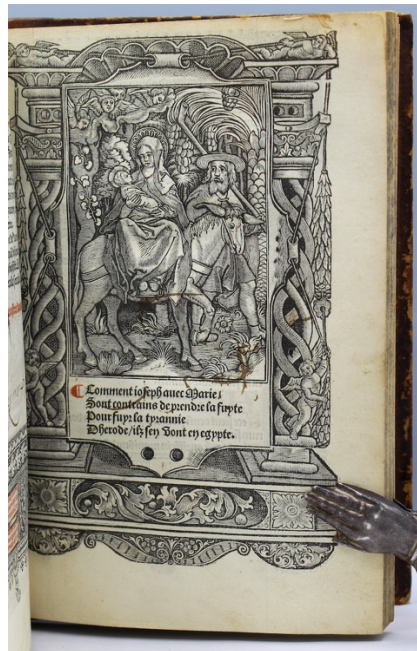 Comment ioseph auec Marie/
Sont contrains de prendre la fuyte
Pour fuyr la tyrannie
Dherode/ilz sen vont en egypte.